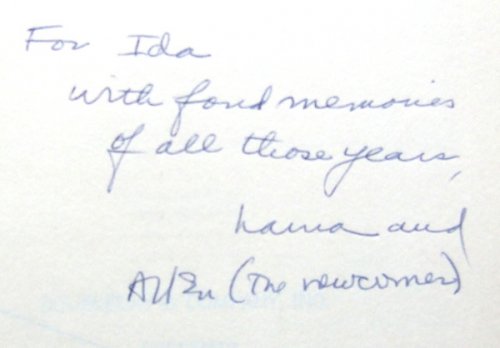 For Ida
with fond memories
of all those years,
Laura and
Allen (the newcomer)